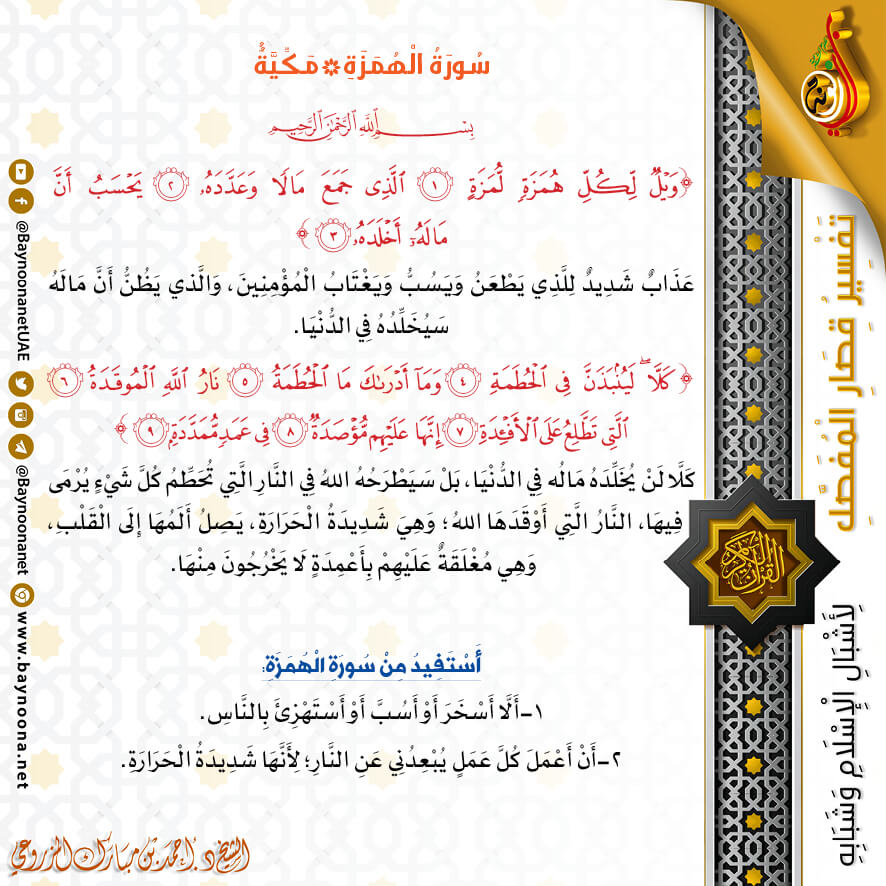 سُورَةُ الْهُمَزَةِ مَكِّيَّةٌ
بِسْمِ اللَّهِ الرَّحْمَٰنِ الرَّحِيمِ
﴿وَيْلٌ لِّكُلِّ هُمَزَةٍ لُّمَزَةٍ ١ ٱلَّذِى جَمَعَ مَالًا وَعَدَّدَهُۥ ٢ يَحْسَبُ أَنَّ
مَالَهُۥٓ أَخْلَدَهُۥ ٣ ﴾
عَذَابٌ شَدِيدٌ لِلَّذِي يَطْعَنُ وَيَسُبُّ وَيَغْتَابُ الْمُؤْمِنِينَ، وَالَّذي يَظُنُّ أَنَّ مَالَهُ
سَيُخَلِّدُهُ فِي الدُّنْيَا.
﴿ كَلَّا ۖ لَيُنۢبَذَنَّ فِى ٱلْحُطَمَةِ ٤ وَمَآ أَدْرَىٰكَ مَا ٱلْحُطَمَةُ ٥ نَارُ ٱللَّهِ ٱلْمُوقَدَةُ ٦
ٱلَّتِى تَطَّلِعُ عَلَى ٱلْأَفْـِٔدَةِ ٧ إِنَّهَا عَلَيْهِم مُّؤْصَدَةٌ ٨ فِى عَمَدٍ مُّمَدَّدَةٍۭ ٩ ﴾
كَلَّا لَنْ يُخَلِّدَهُ مَالُه فِي الدُّنْيَا، بَلْ سَيَطْرَحُهُ اللهُ فِي النَّارِ الَّتِي تُحَطِّمُ كُلَّ شَيْءٍ يُرْمَى
فِيهَا، النَّارُ الَّتِي أَوْقَدَهَا اللهُ؛ وَهِيَ شَدِيدَةُ الْحَرَارَةِ، يَصِلُ أَلَمُهَا إِلَى الْقَلْبِ،
وَهِي مُغْلَقَةٌ عَلَيْهِمْ بِأَعْمِدَةٍ لَا يَخْرُجُونَ مِنْهَا.
أَسْتَفِيدُ مِنْ سُورَةِ الْهُمَزَةِ:
١-أَلَّا أَسْخَرَ أَوْ أَسُبَّ أَوْ أَسْتَهْزِئَ بِالنَّاسِ.
٢-أَنْ أَعْمَلَ كُلَّ عَمَلٍ يُبْعِدُنِي عَنِ النَّارِ؛ لِأَنَّهَا شَدِيدَةُ الْحَرَارَةِ.
تَفْسِيرُ قِصَارِ الْمُفَصَّلِ
لِأَشْبَالِ الْإِسْلَامِ وَشَبَابِهِ
القرآن الكريم
@BaynoonanetUAE
@Baynoonanet
www.baynoona.net
الشيخ د. أحمد بن مبارك المزروعي